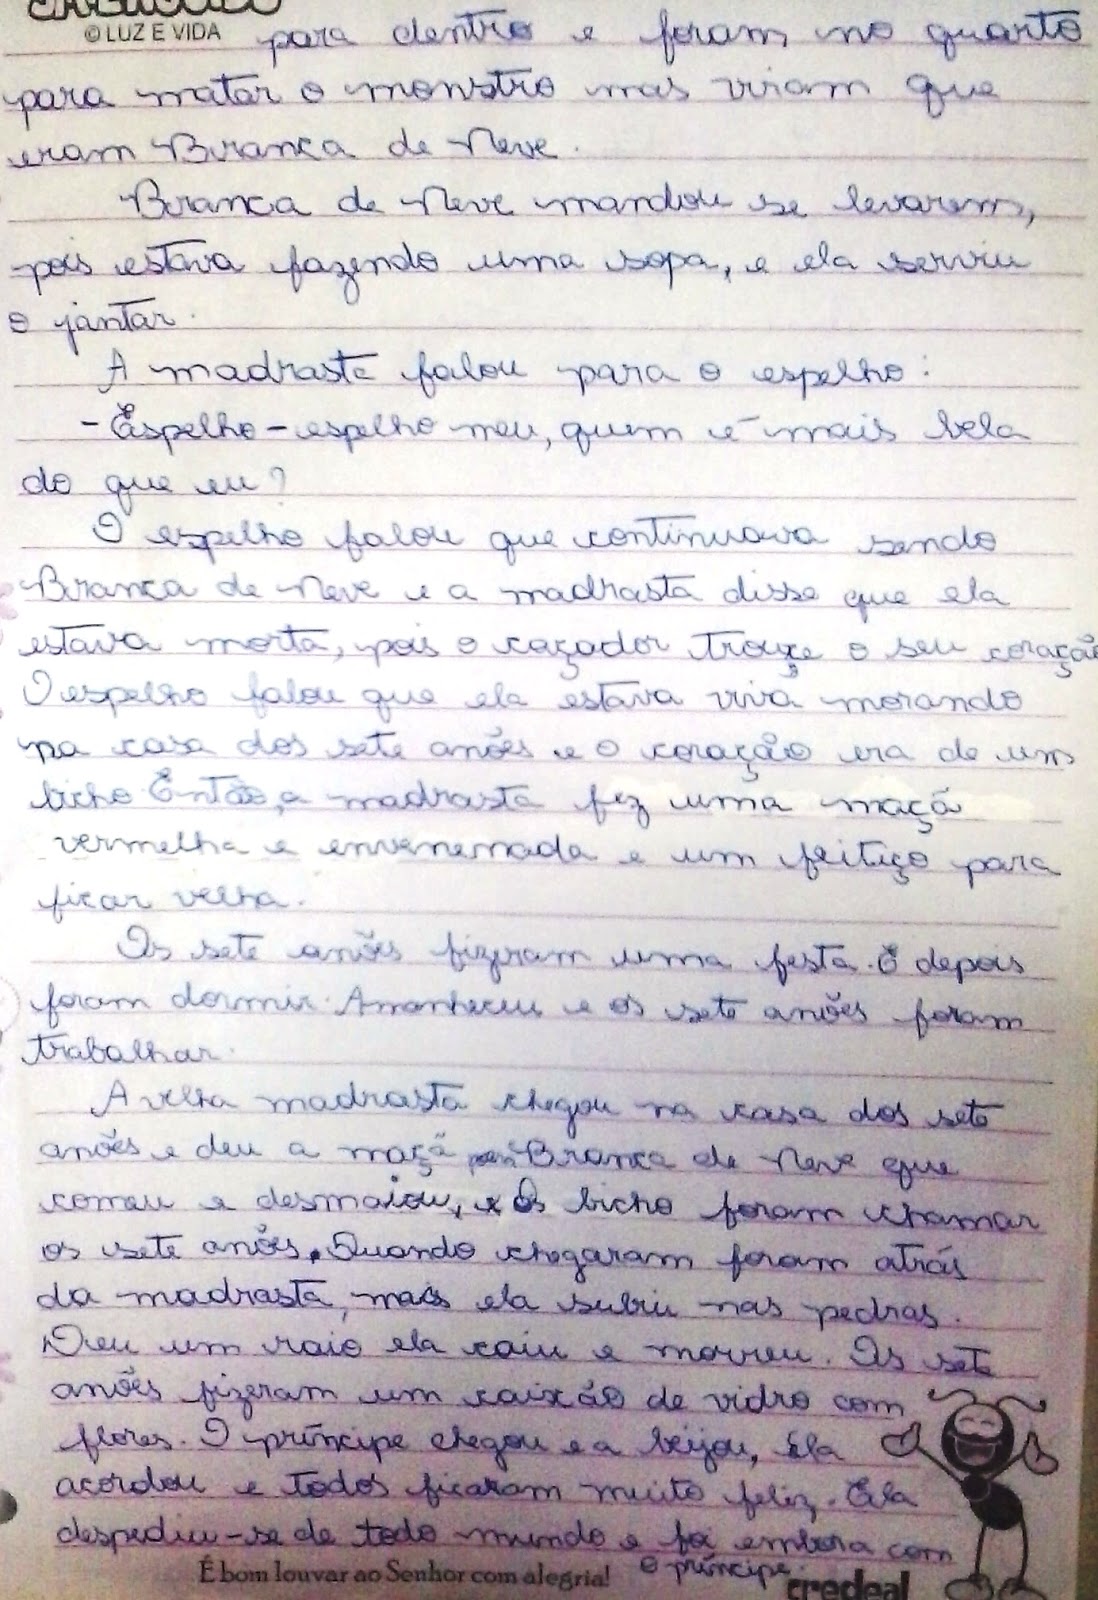 © LUZ E VIDA
para dentro e foram no quarto
para matar o monstro mas viram que
eram Branca de Neve.
Branca de Neve mandou se levarem,
pois estava fazendo uma sopa, e ela serviu
o jantar.
A madrasta falou para o espelho:
- Espelho - espelho meu, quem é mais bela
do que eu?
O espelho falou que continuava sendo
Branca de Neve e a madrasta disse que ela
estava morta, pois o caçador trouçe o seu coração
O espelho falou que ela estava viva morando
na casa dos sete anões e o coração era de um
bicho. Então, a madrasta fez uma maçã
vermelha e envenemada e um feitiço para
ficar velha.
Os sete anões fizeram uma festa. E depois
foram dormir. Amanheceu e os sete anões foram
trabalhar.
A velha madrasta chegou na casa dos sete
anões e deu a maçã para Branca de Neve que
comeu e desmaiou, e Os bicho foram chamar
os sete anões. Quando chegaram foram atrás
da madrasta, mais ela subiu nas pedras.
Deu um raio ela caiu e morreu. Os sete
anões fizeram um caixão de vidro com
flores. O príncipe chegou e a beijou, Ela
acordou e todos ficaram muito feliz. Ela
despediu-se de todo mundo e foi embora com
o príncipe.
É bom louvar ao Senhor com alegria!
credeal